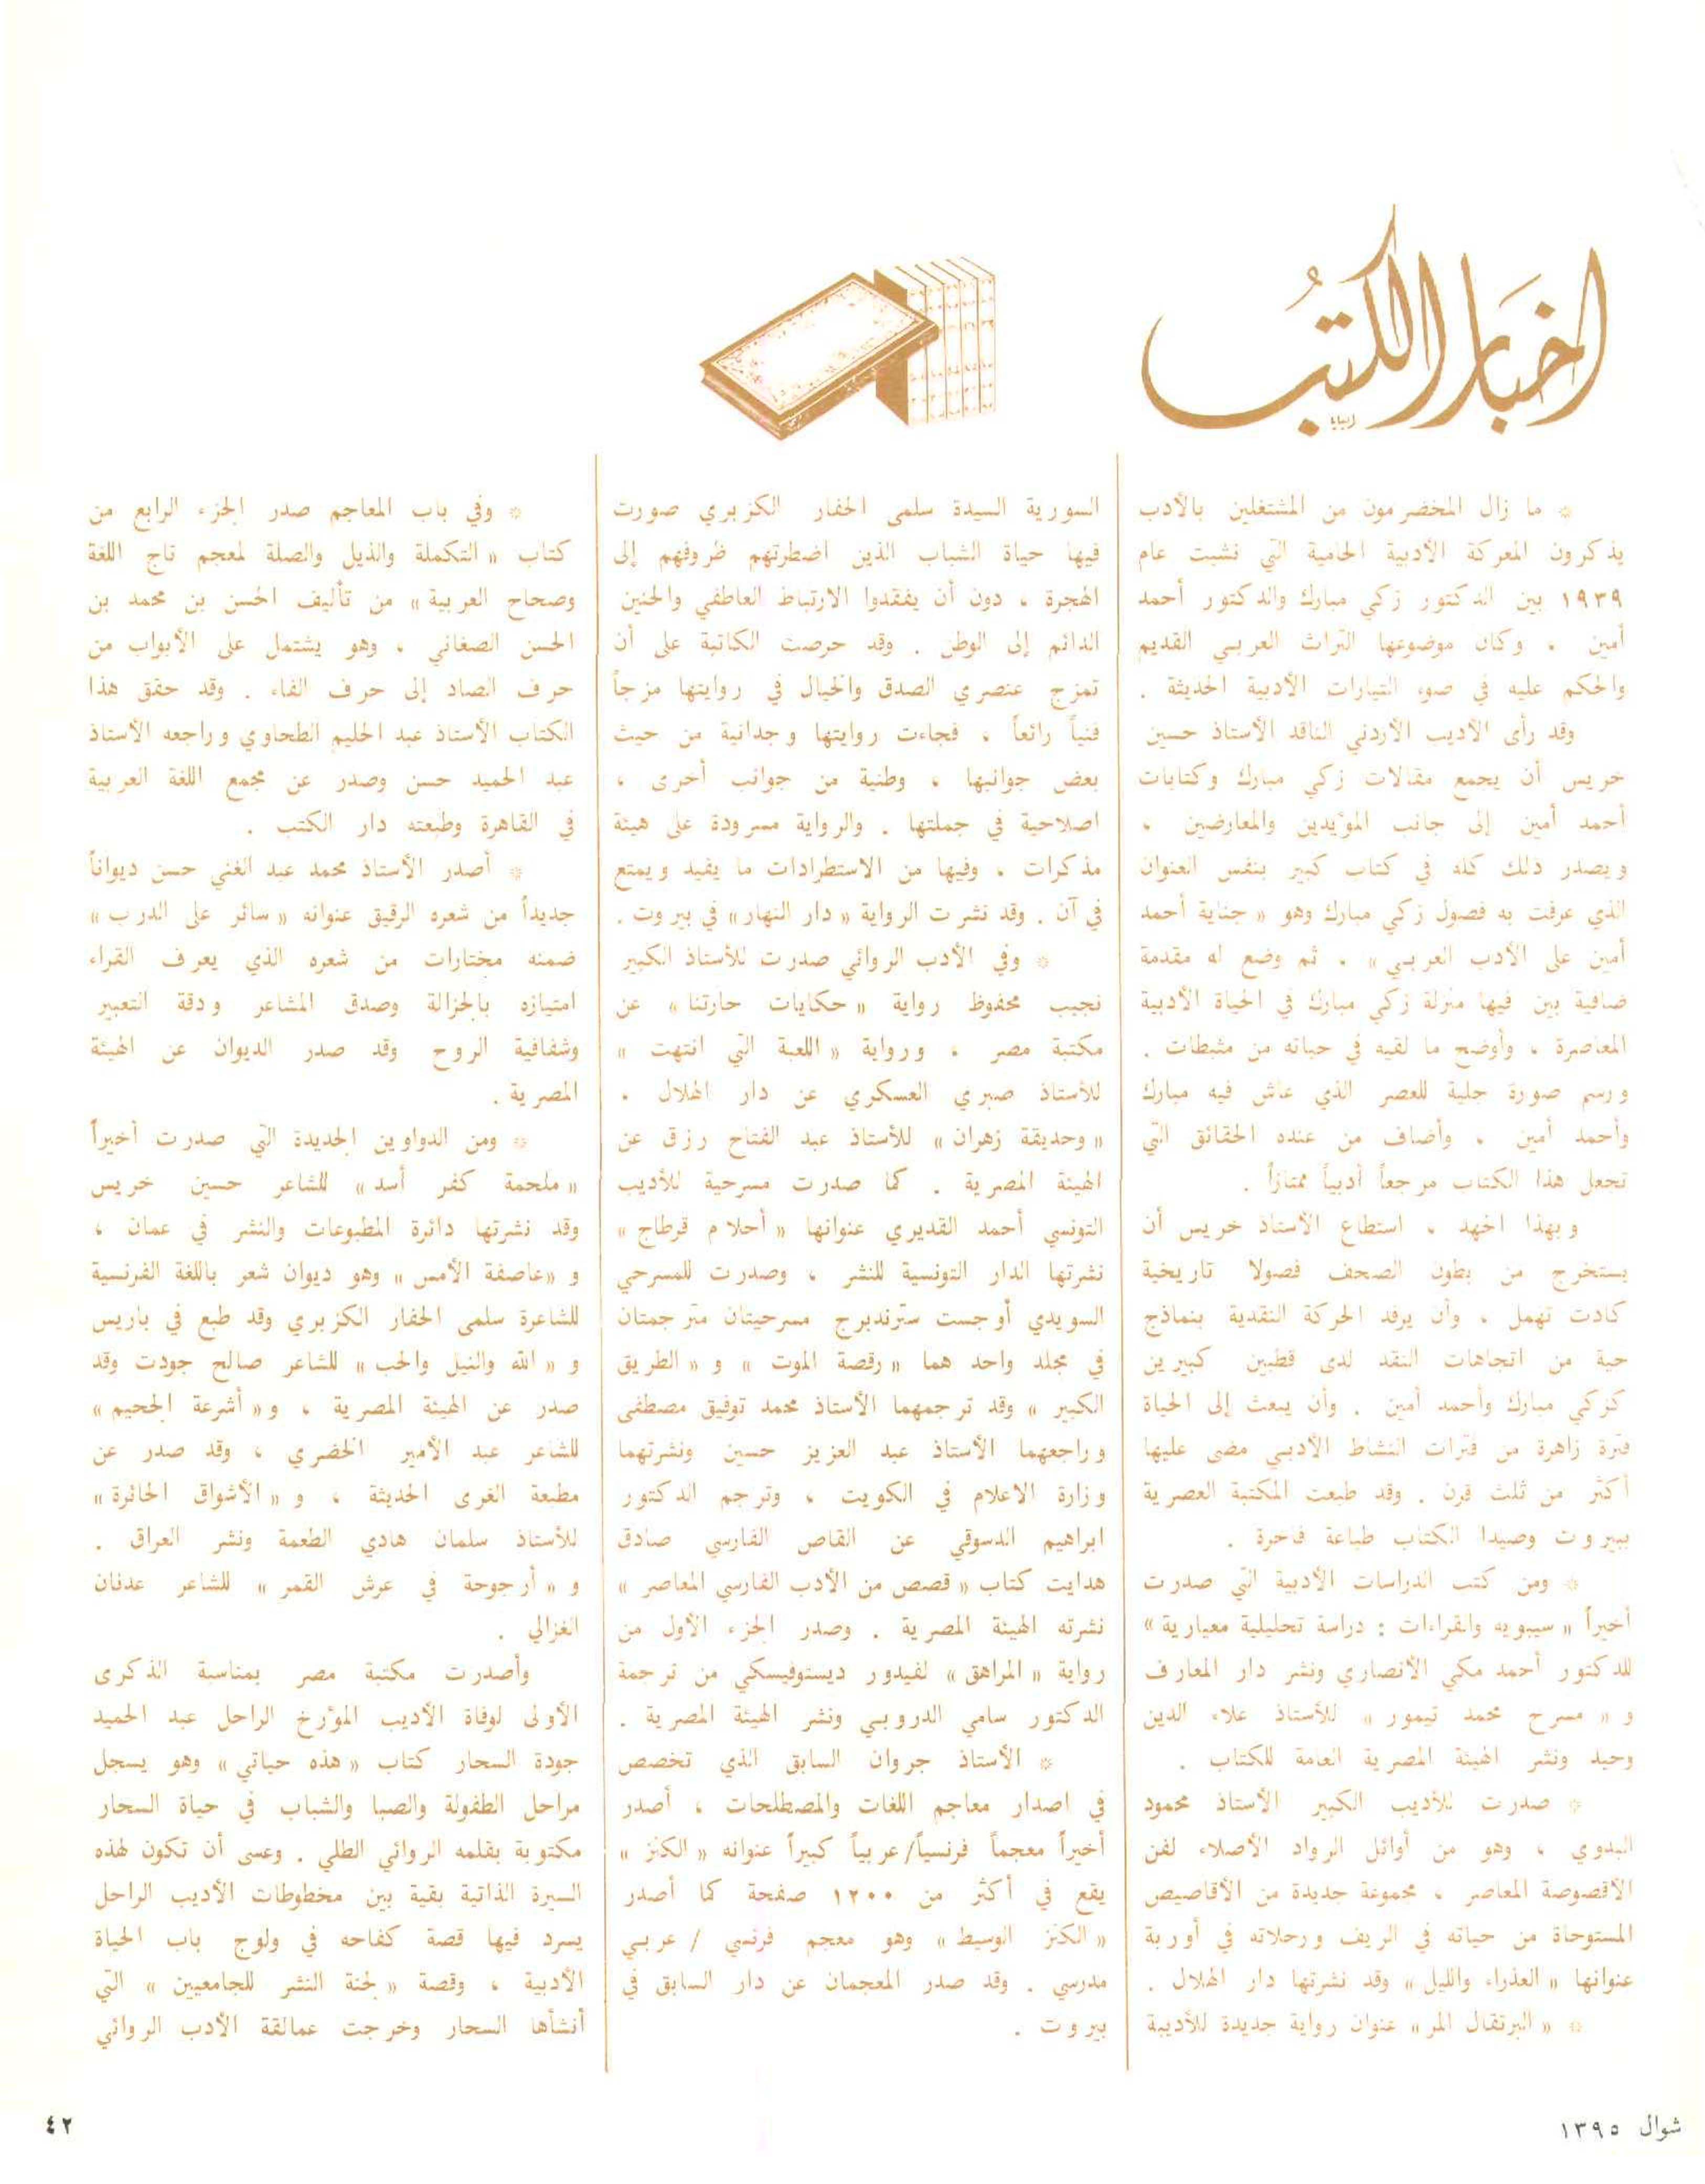 اخبار الكتب
* ما زال المخضرمون من المشتغلين بالأدب
يذكرون المعركة الأدبية الحامية التي نشبت عام
١٩٣٩ بين الدكتور زكي مبارك والدكتور أحمد
أمين ، وكان موضوعها التراث العربي القديم
والحكم عليه في ضوء التيارات الأدبية الحديثة .
وقد رأى الأديب الأردني الناقد الأستاذ حسين
خريس أن يجمع مقالات زكي مبارك وكتابات
أحمد أمين إلى جانب المؤيدين والمعارضين ،
ويصدر ذلك كله في كتاب كبير بنفس العنوان
الذي عرفت به فصول زكي مبارك وهو « جناية أحمد
أمين على الأدب العربي » . ثم وضع له مقدمة
ضافية بين فيها منزلة زكي مبارك في الحياة الأدبية
المعاصرة ، وأوضح ما لقيه في حياته من مثبطات .
ورسم صورة جلية للعصر الذي عاش فيه مبارك
وأحمد أمين ، وأضاف من عنده الحقائق التي
تجعل هذا الكتاب مرجعاً أدبياً ممتازاً .
وبهذا الجهد ، استطاع الأستاذ خريس أن
يستخرج من بطون الصحف فصولا تاريخية
كادت تهمل ، وأن يرفد الحركة النقدية بنماذج
حية من اتجاهات النقد لدى قطبين كبيرين
كزكي مبارك وأحمد أمين . وأن يبعث إلى الحياة
فترة زاهرة من فترات النشاط الأدبي مضى عليها
أكثر من ثلث قرن . وقد طبعت المكتبة العصرية
ببيروت وصيدا الكتاب طباعة فاخرة .
* ومن كتب الدراسات الأدبية التي صدرت
أخيراً « سيبويه والقراءات : دراسة تحليلية معيارية »
للدكتور أحمد مكي الأنصاري ونشر دار المعارف
و « مسرح محمد تيمور » للأستاذ علاء الدين
وحيد ونشر الهيئة المصرية العامة للكتاب .
* صدرت للأديب الكبير الأستاذ محمود
البدوي ، وهو من أوائل الرواد الأصلاء لفن
الأقصوصة المعاصر ، مجموعة جديدة من الأقاصيص
المستوحاة من حياته في الريف ورحلاته في أوربة
عنوانها « العذراء والليل » وقد نشرتها دار الهلال .
* « البرتقال المر » عنوان رواية جديدة للأديبة
السورية السيدة سلمى الحفار الكزبري صورت
فيها حياة الشباب الذين اضطرتهم ظروفهم إلى
الهجرة ، دون أن يفقدوا الارتباط العاطفي والحنين
الدائم إلى الوطن . وقد حرصت الكاتبة على أن
تمزج عنصري الصدق والخيال في روايتها مزجاً
فنياً رائعاً ، فجاءت روايتها وجدانية من حيث
بعض جوانبها ، وطنية من جوانب أخرى ،
اصلاحية في جملتها . والرواية مسرودة على هيئة
مذكرات ، وفيها من الاستطرادات ما يفيد ويمتع
في آن . وقد نشرت الرواية « دار النهار » في بيروت .
* وفي الأدب الروائي صدرت للأستاذ الكبير
نجيب محفوظ رواية « حكايات حارتنا » عن
مكتبة مصر ، ورواية « اللعبة التي انتهت »
للأستاذ صبري العسكري عن دار الهلال .
« وحديقة زهران » للأستاذ عبد الفتاح رزق عن
الهيئة المصرية . كما صدرت مسرحية للأديب
التونسي أحمد القديري عنوانها « أحلام قرطاج »
نشرتها الدار التونسية للنشر ، وصدرت للمسرحي
السويدي أوجست سترندبرج مسرحيتان مترجمتان
في مجلد واحد هما « رقصة الموت » و « الطريق
الكبير » وقد ترجمهما الأستاذ محمد توفيق مصطفى
وراجعهما الأستاذ عبد العزيز حسين ونشرتهما
وزارة الاعلام في الكويت ، وترجم الدكتور
ابراهيم الدسوقي عن القاص الفارسي صادق
هدايت كتاب « قصص من الأدب الفارسي المعاصر »
نشرته الهيئة المصرية . وصدر الجزء الأول من
رواية « المراهق » لفيدور ديستوفيسكي من ترجمة
الدكتور سامي الدروبي ونشر الهيئة المصرية .
* الأستاذ جروان السابق الذي تخصص
في اصدار معاجم اللغات والمصطلحات ، أصدر
أخيراً معجماً فرنسياً/عربياً كبيراً عنوانه « الكنز »
يقع في أكثر من ١٢٠٠ صفحة كما أصدر
« الكنز الوسيط » وهو معجم فرنسي / عربي
مدرسي . وقد صدر المعجمان عن دار السابق في
بيروت .
* وفي باب المعاجم صدر الجزء الرابع من
كتاب « التكملة والذيل والصلة لمعجم تاج اللغة
وصحاح العربية » من تأليف الحسن بن محمد بن
الحسن الصغاني ، وهو يشتمل على الأبواب من
حرف الصاد إلى حرف الفاء . وقد حقق هذا
الكتاب الأستاذ عبد الحليم الطحاوي وراجعه الأستاذ
عبد الحميد حسن وصدر عن مجمع اللغة العربية
في القاهرة وطبعته دار الكتب .
* أصدر الأستاذ محمد عبد الغني حسن ديواناً
جديداً من شعره الرقيق عنوانه « سائر على الدرب »
ضمنه مختارات من شعره الذي يعرف القراء
امتيازه بالجزالة وصدق المشاعر ودقة التعبير
وشفافية الروح وقد صدر الديوان عن الهيئة
المصرية .
* ومن الدواوين الجديدة التي صدرت أخيراً
« ملحمة كفر أسد » للشاعر حسين خريس
وقد نشرتها دائرة المطبوعات والنشر في عمان ،
و « عاصفة الأمس » وهو ديوان شعر باللغة الفرنسية
للشاعرة سلمى الحفار الكزبري وقد طبع في باريس
و « الله والنيل والحب » للشاعر صالح جودت وقد
صدر عن الهيئة المصرية ، و « أشرعة الجحيم »
للشاعر عبد الأمير الخضري ، وقد صدر عن
مطبعة الغري الحديثة ، و « الأشواق الحائرة »
للأستاذ سلمان هادي الطعمة ونشر العراق .
و « أرجوحة في عرش القمر » للشاعر عدنان
الغزالي .
وأصدرت مكتبة مصر بمناسبة الذكرى
الأولى لوفاة الأديب المؤرخ الراحل عبد الحميد
جودة السحار كتاب « هذه حياتي » وهو يسجل
مراحل الطفولة والصبا والشباب في حياة السحار
مكتوبة بقلمه الروائي الطلي . وعسى أن تكون لهذه
السيرة الذاتية بقية بين مخطوطات الأديب الراحل
يسرد فيها قصة كفاحه في ولوج باب الحياة
الأدبية ، وقصة « لجنة النشر للجامعيين » التي
أنشأها السحار وخرجت عمالقة الأدب الروائي
شوال ١٣٩٥
٤٢